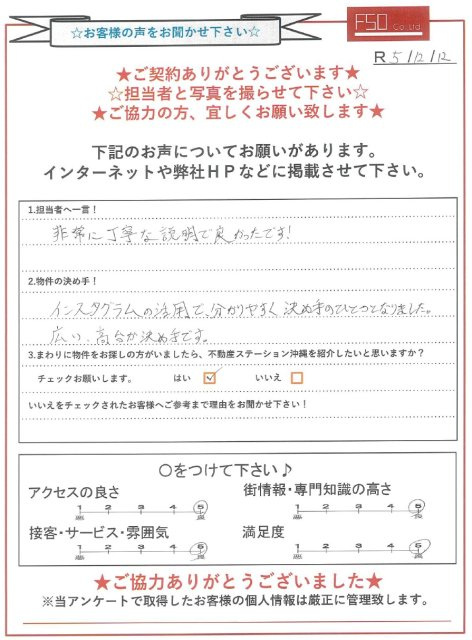 ☆お客様の声をお聞かせ下さい☆
FSO
Co.Ltd.
R 5/12/12
★ご契約ありがとうございます★
☆担当者と写真を撮らせて下さい☆
★ご協力の方、宜しくお願い致します★
下記のお声についてお願いがあります。
インターネットや弊社HPなどに掲載させて下さい。
1.担当者へ一言！
非常に丁寧な説明で良かったです!
2.物件の決め手！
インスタグラムの活用で、分かりやすく決め手のひとつとなりました。
広い、高台が決め手です。
3.まわりに物件をお探しの方がいましたら、不動産ステーション沖縄を紹介したいと思いますか？
チェックお願いします。 はい ☑ いいえ □
いいえをチェックされたお客様へご参考まで理由をお聞かせ下さい！
○をつけて下さい♪
アクセスの良さ 街情報・専門知識の高さ
1 2 3 4 5 1 2 3 4 5
悪 良 悪 良
接客・サービス・雰囲気 満足度
1 2 3 4 5 1 2 3 4 5
悪 良 悪 良
★ご協力ありがとうございました★
※当アンケートで取得したお客様の個人情報は厳正に管理致します。